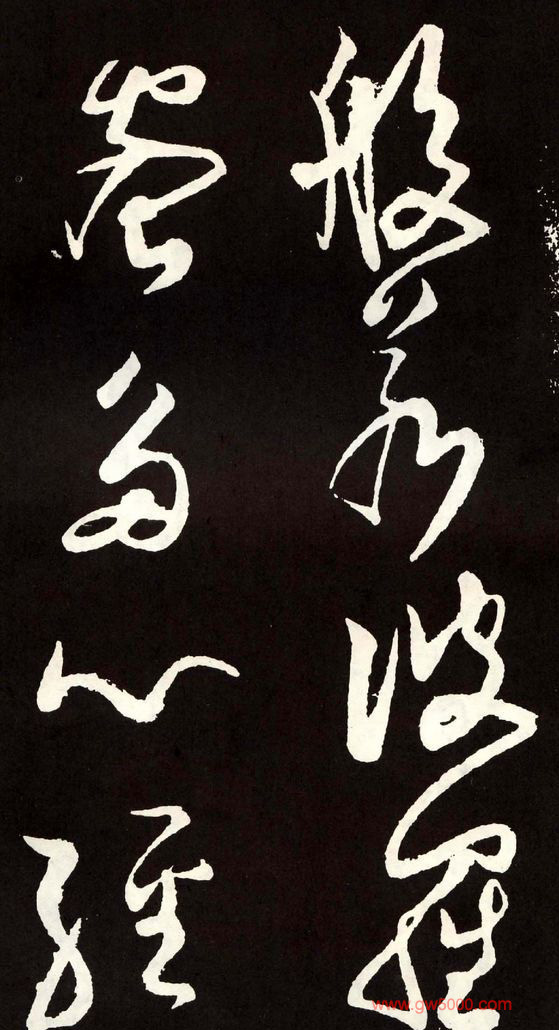 般若波羅
蜜多心経
www.gw5000.com